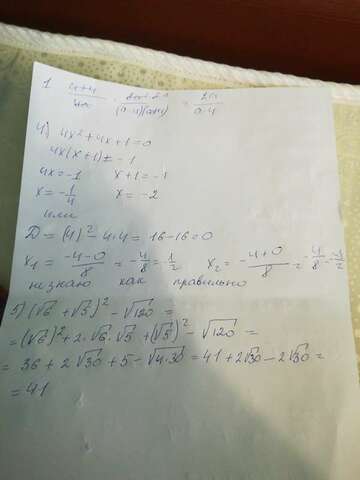 1
4) 4x² + 4x + 1 = 0
4x(x+1) = -1
4x = -1 x+1 = -1
x = -1/4 x = -2
или
D = (4)² - 4·4 = 16 - 16 = 0
x₁ = (-4-0)/8 = -4/8 = -1/2 x₂ = (-4+0)/8 = -4/8 = -1/2
незнаю как правильно
5) (√6 + √5)² - √120 =
= (√6)² + 2·√6·√5 + (√5)² - √120 =
= 36 + 2√30 + 5 - √4·30 = 41 + 2√30 - 2√30 =
= 41